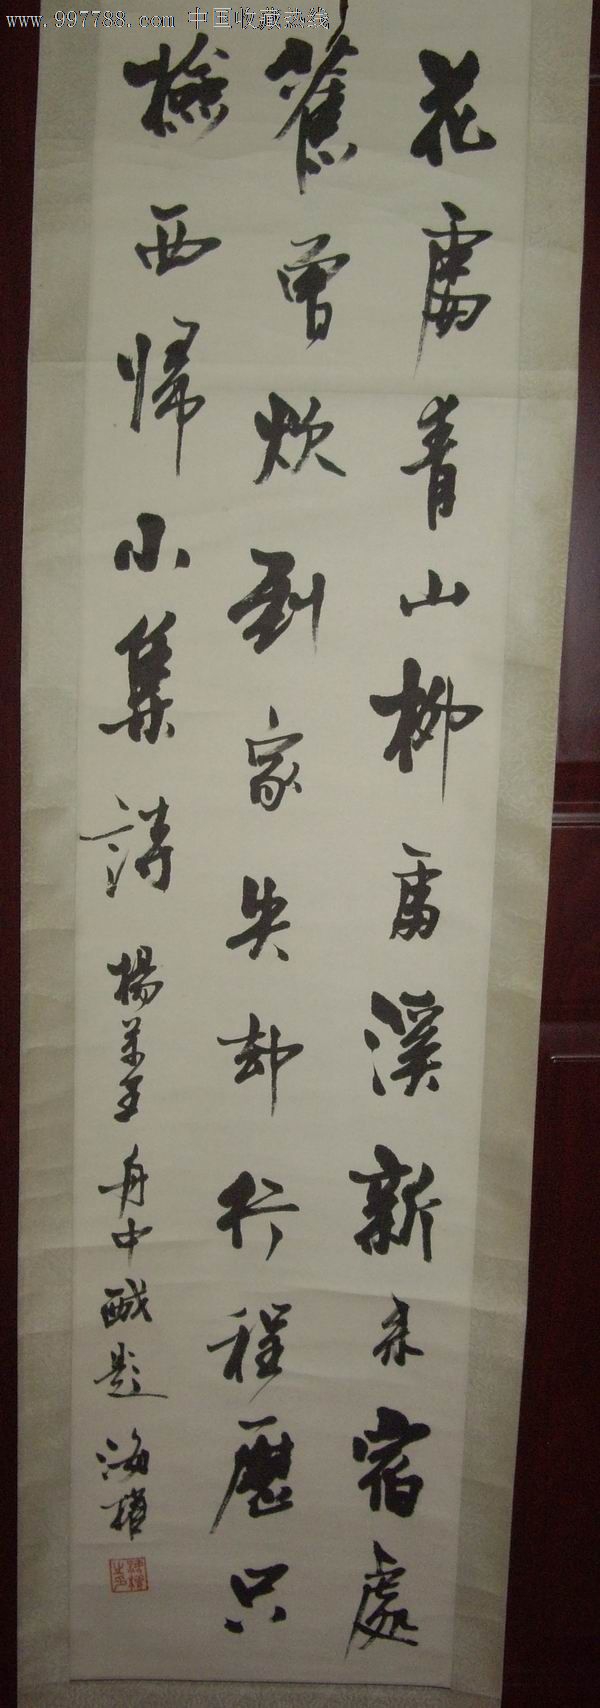 www.997788.com 中国收藏热线
花處青山柳處溪新来宿處
舊曾炊到家失却行程歷只
檢西歸小集詩 楊萬里舟中戲題 海